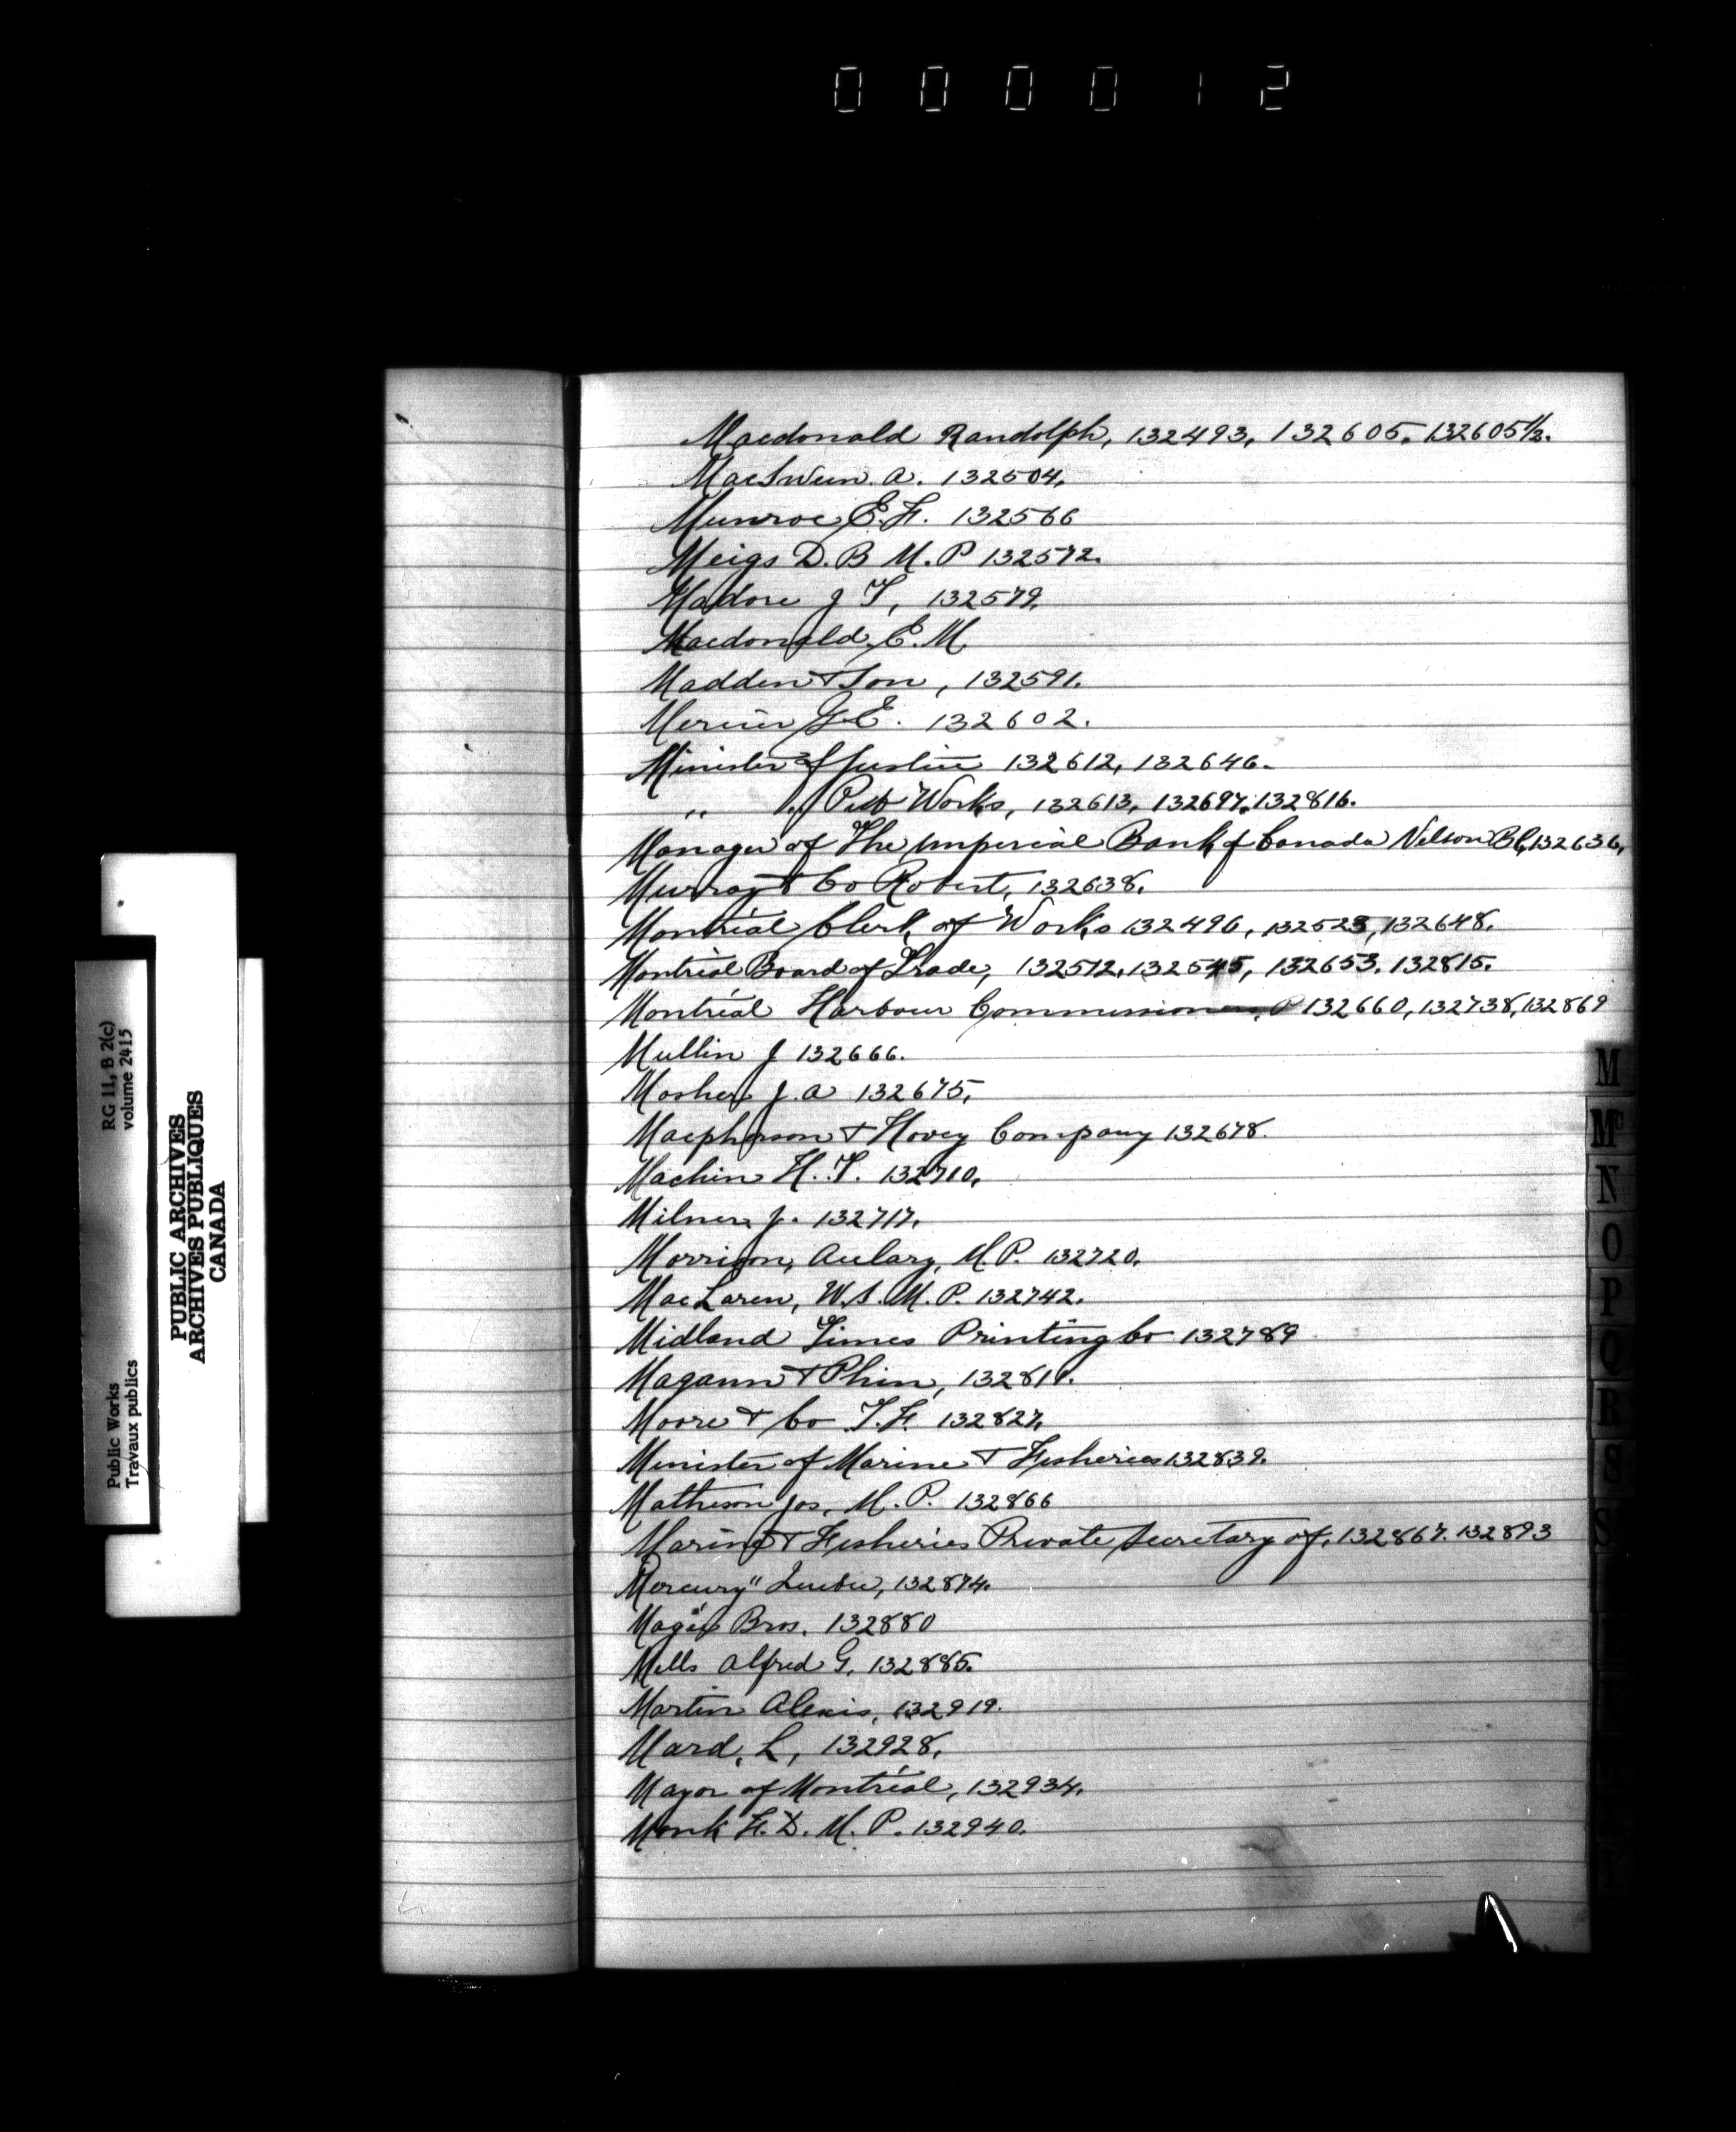 000012
Macdonald Randolph, 132493, 132605, 132605½.
MacSween A. 132504.
Munroe E.F. 132566
Meigs D.B M.P 132572.
Madore J T, 132579.
Macdonald E.M.
Madden & Son, 132591.
Mercier J.E. 132602.
Minister of Justice 132612, 132646.
" " Pub Works, 132613, 132697, 132816.
Manager of The Imperial Bank of Canada Nelson BC, 132636,
Murray & Co Robert, 132638.
Montréal Clerk of Works 132496, 132523, 132648.
Montréal Board of Trade, 132512, 132545, 132653. 132815.
Montréal Harbour Commissioners, 132660, 132738, 132869
Mullin J 132666.
Mosher J.A 132675,
Macpherson & Hovey Company 132678.
Machin H.T. 132710,
Milner J. 132717.
Morrison, Aulary, M.P. 132720.
MacLaren, W.S. M.P. 132742.
Midland Times Printing Co 132789
Magann & Phin, 132811.
Moore & Co T.F. 132827.
Minister of Marine & Fisheries 132839.
Matheson Jos, M.P. 132866
Marine & Fisheries Private Secretary of, 132867. 132893
Mercury" Quebec, 132874.
Bros. 132880
Mills Alfred G, 132885.
Martin Alexis, 132919.
Mard, L, 132928,
Mayor of Montréal, 132934.
Monk F.D. M.P. 132940.
M
Mc
N
O
P
Q
R
S
S
RG 11, B 2(c)
volume 2415
PUBLIC ARCHIVES
ARCHIVES PUBLIQUES
CANADA
Public Works
Travaux publics